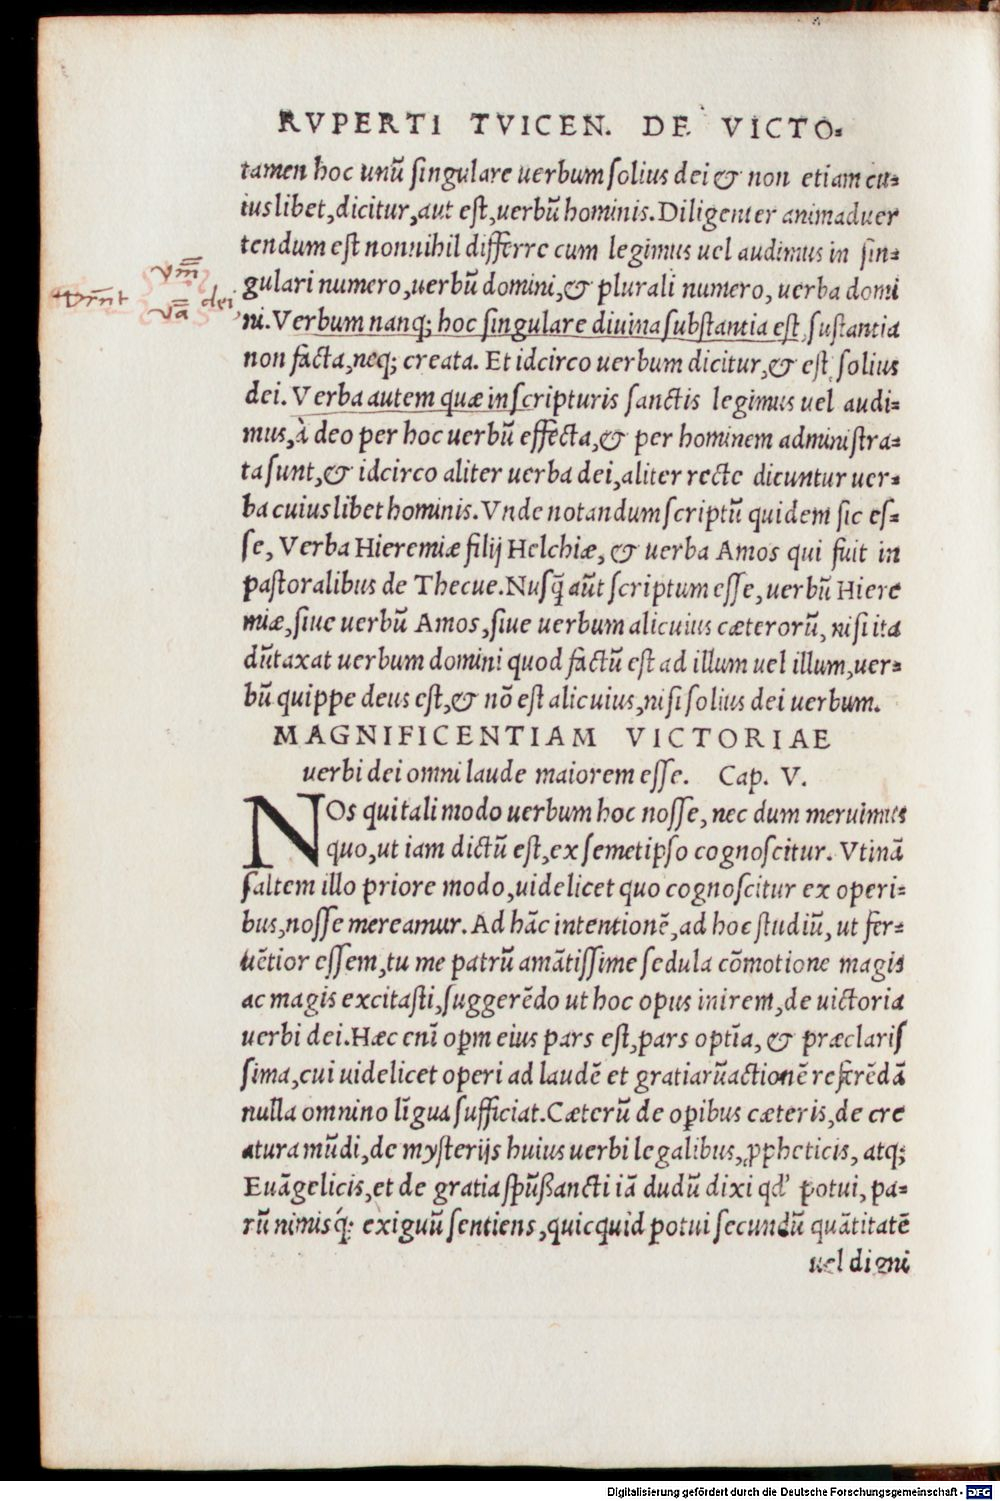 RVPERTI TVICEN. DE VICTO-
tamen hoc unũ ſingulare uerbum ſolius dei & non etiam cu-
iuslibet, dicitur, aut eſt, uerbũ hominis. Diligenter animaduer
tendum eſt nonnihil differre cum legimus uel audimus in ſin-
gulari numero, uerbũ domini, & plurali numero, uerba domi
ni. Verbum nanq; hoc ſingulare diuina ſubſtantia eſt, ſuſtantia
non facta, neq; creata. Et idcirco uerbum dicitur, & eſt ſolius
dei. Verba autem quæ in ſcripturis ſanctis legimus uel audi-
mus, à deo per hoc uerbũ effecta, & per hominem adminiſtra-
ta ſunt, & idcirco aliter uerba dei, aliter recte dicuntur uer-
ba cuiuslibet hominis. Vnde notandum ſcriptũ quidem ſic eſ-
ſe, Verba Hieremiæ filij Helchiæ, & uerba Amos qui fuit in
paſtoralibus de Thecue. Nuſq̃ aũt ſcriptum eſſe, uerbũ Hiere
miæ, ſiue uerbũ Amos, ſiue uerbum alicuius cæterorũ, niſi ita
dũtaxat uerbum domini quod factũ eſt ad illum uel illum, uer-
bũ quippe deus eſt, & nõ eſt alicuius, niſi ſolius dei uerbum.
MAGNIFICENTIAM VICTORIAE
uerbi dei omni laude maiorem eſſe. Cap. V.
NOs qui tali modo uerbum hoc noſſe, nec dum meruimus
quo, ut iam dictũ eſt, ex ſemetipſo cognoſcitur. Vtinã
ſaltem illo priore modo, uidelicet quo cognoſcitur ex operi-
bus, noſſe mereamur. Ad hãc intentionẽ, ad hoc ſtudiũ, ut fer-
uẽtior eſſem, tu me patrũ amãtiſſime ſedula cõmotione magis
ac magis excitaſti, ſuggerẽdo ut hoc opus inirem, de uictoria
uerbi dei. Hæc enĩ oꝑm eius pars eſt, pars optĩa, & præclariſ
ſima, cui uidelicet operi ad laudẽ et gratiarũactionẽ referẽdã
nulla omnino lĩgua ſufficiat. Cæterũ de oꝑibus cæteris, de cre
atura mũdi, de myſterijs huius uerbi legalibus, ꝓpheticis, atq;
Euãgelicis, et de gratia ſpũsſancti iã dudũ dixi qd' potui, pa-
rũ nimisq́; exiguũ ſentiens, quicquid potui ſecundũ quãtitatẽ
uel digni
vm̃
vã dei
Digitalisierung gefördert durch die Deutsche Forschungsgemeinschaft - DFG